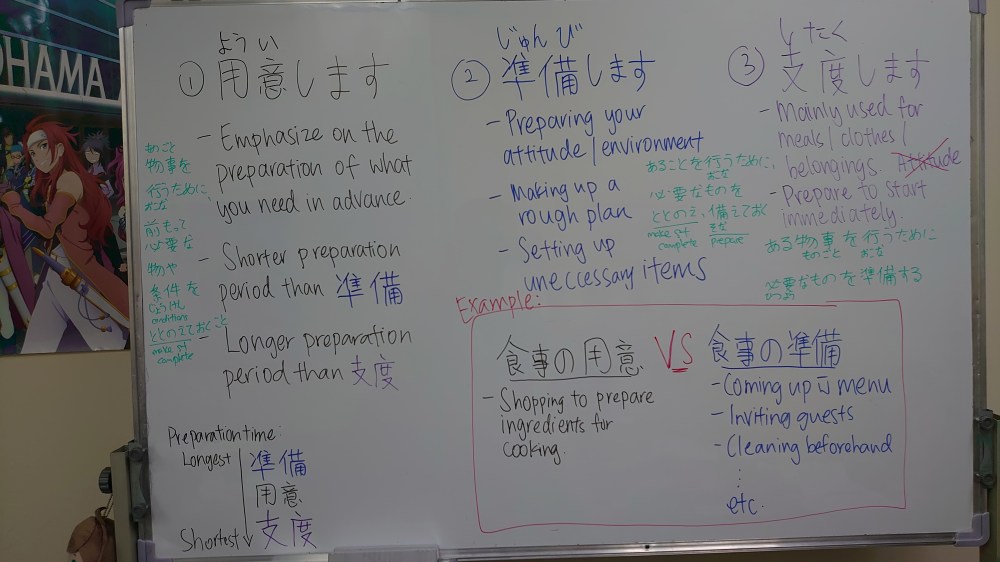 OHAMA
ようい
① 用意します
- Emphasize on the
preparation of what
you need in advance.
- Shorter preparation
period than 準備
- Longer preparation
period than 支度
ものごと
物事を
行うために
おこな
前もって
必要な
物や
条件を
conditions
ととのえておくこと
make st
complete
Preparation time:
Longest
準備
用意
Shortest 支度
じゅんび
② 準備します
- Preparing your
attitude/environment
- Making up a
rough plan
- Setting up
uneccessary items
あることを行うために、
おこな
必要なものを
ととのえ、備えておく
make st そな
complete prepare
したく
③ 支度します
- Mainly used for
meals/clothes/
belongings. Attitude
- Prepare to start
immediately.
ある物事を行うために
ものごと おこな
必要なものを準備する
ひつよう
Example:
食事の用意 VS 食事の準備
- Shopping to prepare
ingredients for
cooking.
- Coming up menu
- Inviting guests
- Cleaning beforehand
⋮
etc.